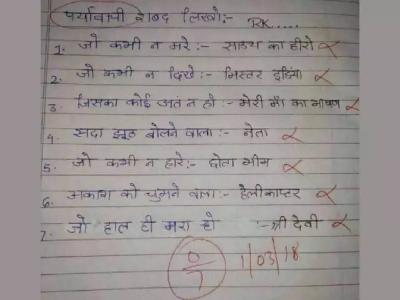 पर्यावाची शब्द लिखो:-
RK.....
1. जो कभी न मरे:- साउथ का हीरो
2. जो कभी न दिखे:- मिस्टर इंडिया
3. जिसका कोई अंत न हो:- मेरी माँ का भाषण
4. सदा झूठ बोलने वाला:- नेता
5. जो कभी न हारे:- छोटा भीम
6. अकाश को चुमने वाला:- हेलीकाप्टर
7. जो हाल ही मरा हो :- श्री देवी
0/7 1/03/18